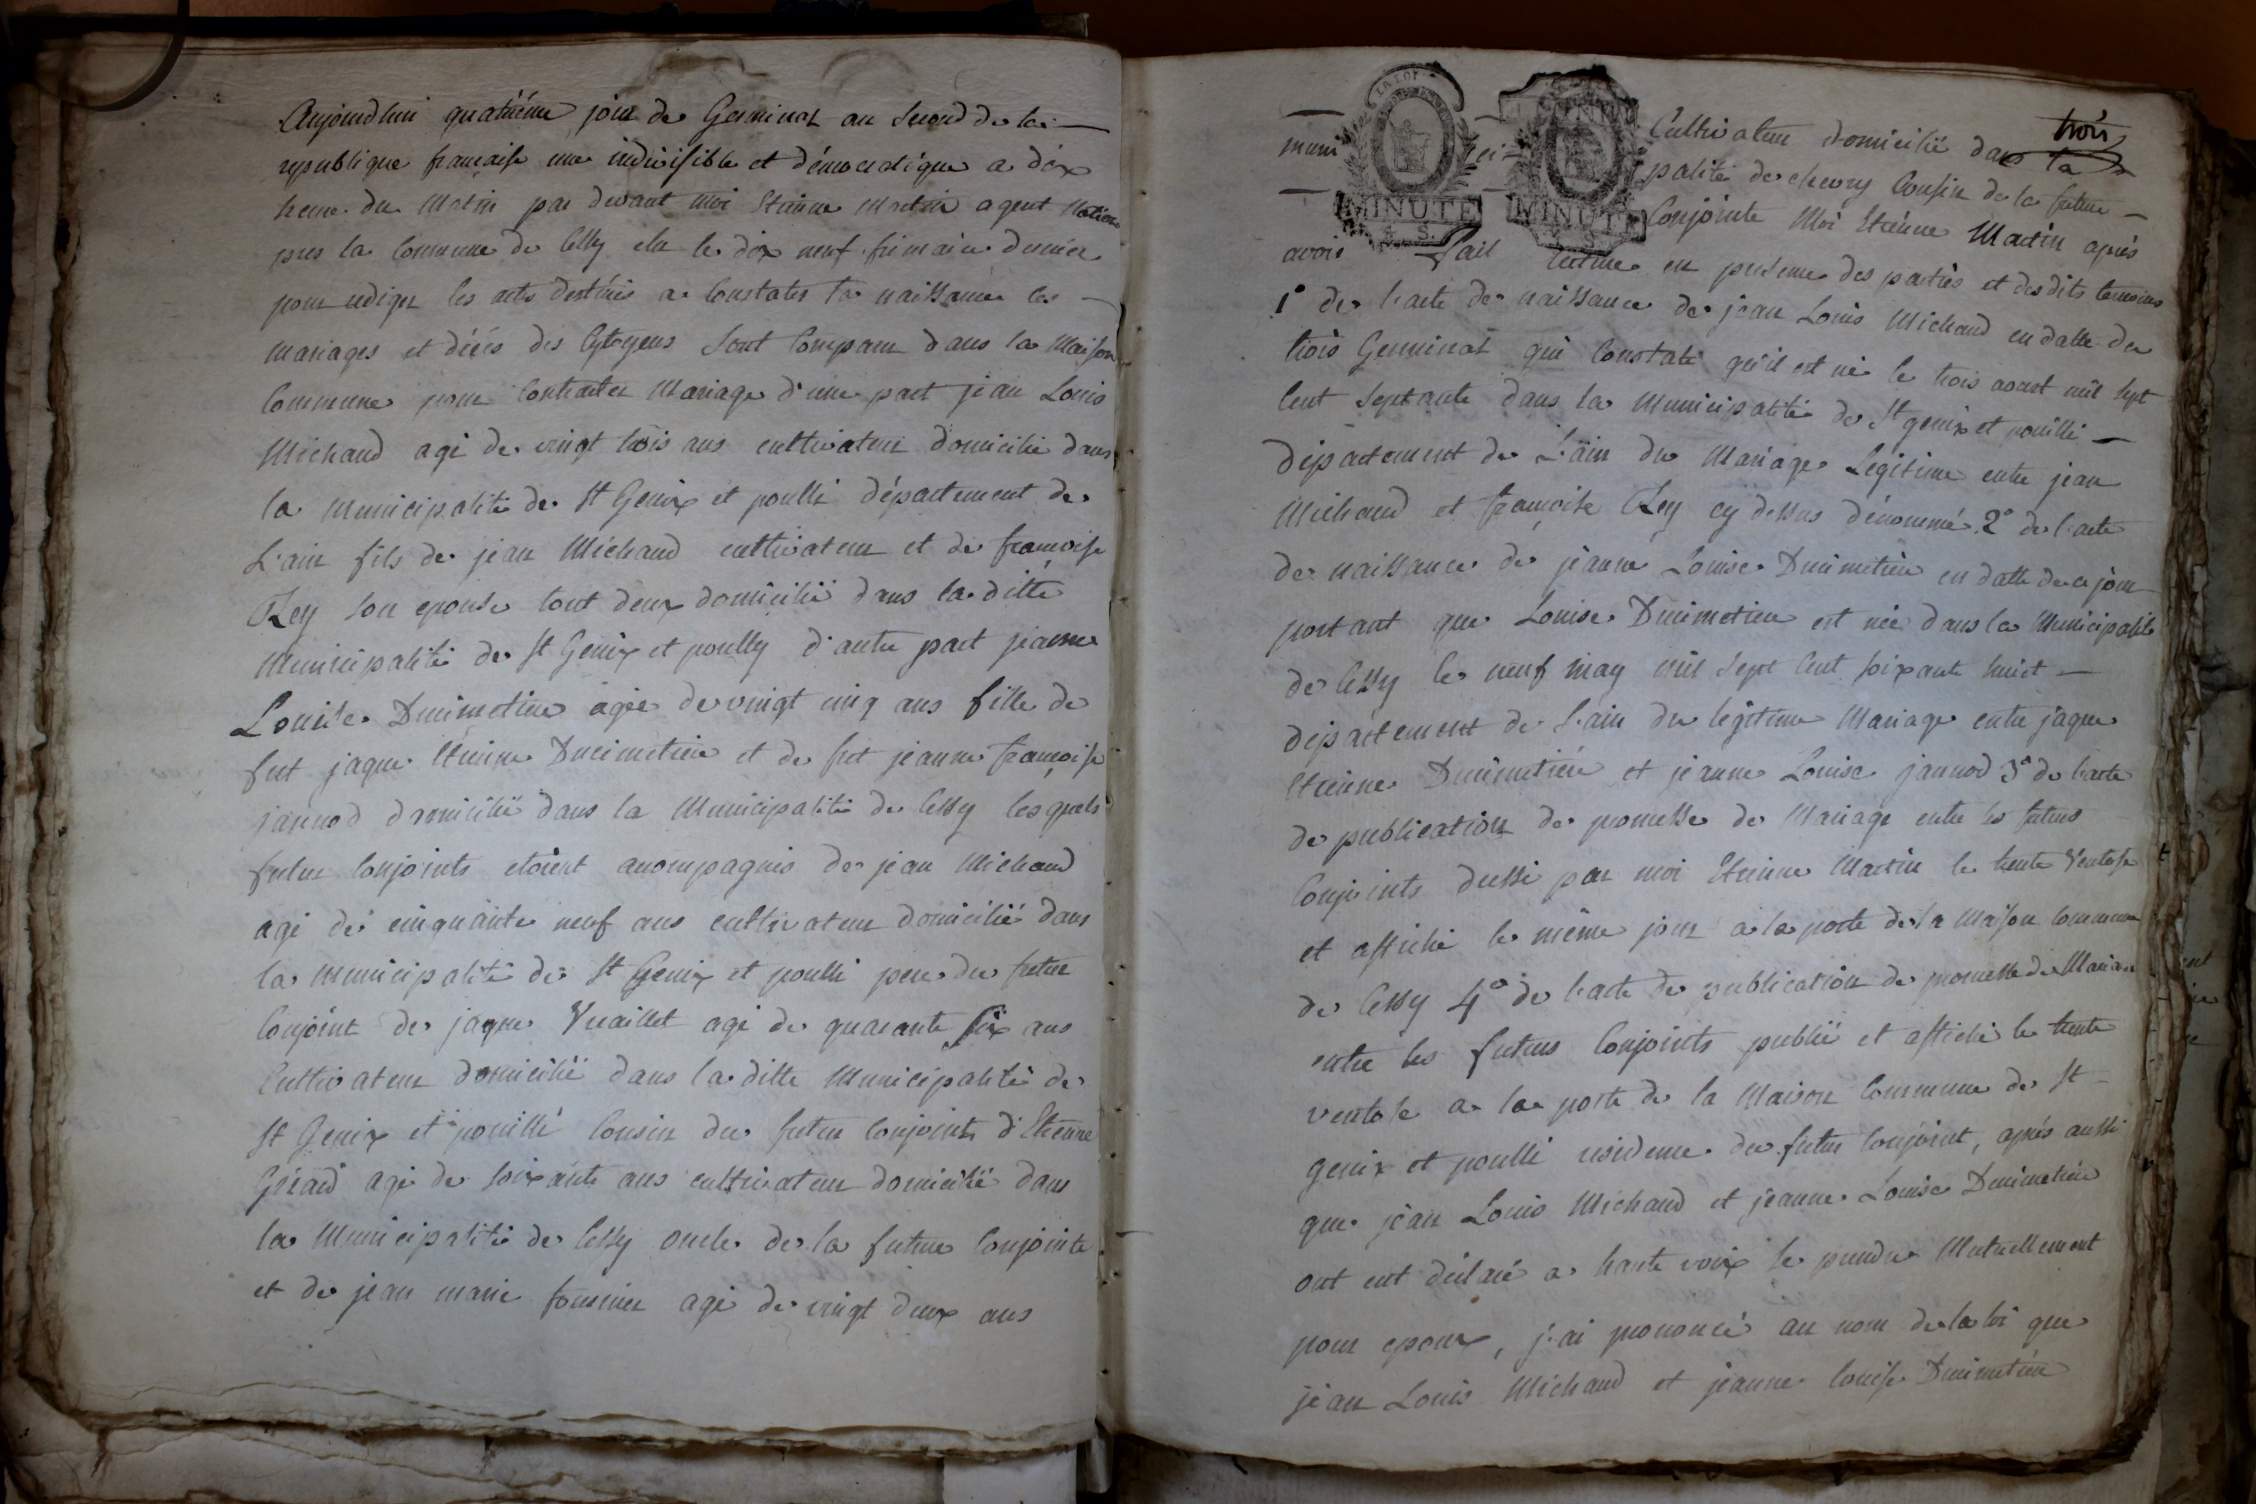 Aujourdhui quatriéme jour de Germinal an second de la
republique francaise une indivisible et démocratique a dix
heure du Matin par devant moi Etienne Martin agent Nation
pres la Commune de Cessy elu le dix neuf frimaire dernier
pour rediger les actes destinés a Constater la naissance les
mariages et décés des Cytoyens sont Comparu dans la Maison
Commune pour Contracter Mariage d'une part jean Louis
Michaud agé de vingt trois ans cultivateur domicilié dans
la Municipalité de St Genix et poulli département de
L'ain fils de jean Michaud cultivateur et de francoise
Rey son epouse tout deux domicilié dans la ditte
Municipalité de St Genix et poully d'autre part jeanne
Louise Ducimetiere agée de vingt cinq ans fille de
fut jaque Etienne Ducimetiere et de fut jeanne françoise
jannod domicilié dans la Municipalité de Cessy lesquels
futur Conjoints etoient accompagnés de jean Michaud
agé de cinquante neuf ans cultivateur domicilié dans
la Municipalité de St Genix et poulli pere du futur
Conjoint de jaque Vuaillet agé de quarante six ans
Cultivateur domicilié dans la ditte Municipalité de
St Genix et pouilli Cousin du futur Conjoints d'Etienne
Gérard agé de soixante ans cultivateur domicilié dans
la Municipalité de Cessy oncle de la future Conjointe
et de jean marie fournier agé de vingt deux ans
trois
LA LOI
MINUTE
MINUTE
Cultivateur domicilié dans la
muni ci- palité de chevry Cousin de la future
Conjointe Moi Etienne Martin aprés
avoir fait lecture en presence des parties et des dits temoins
1° de l'acte de naissance de jean Louis Michaud en datte du
trois Germinal qui Constate qu'il est né le trois aoust mil sept
Cent septante dans la Municipalité de St genix et pouilli
département de L'ain du Mariage Legitime entre jean
Michaud et françoise Rey cy dessus dénommé 2° de l'acte
de naissance de jeanne Louise Ducimetiere en datte de ce jour
portant que Louise Ducimetiere est née dans la Municipalité
de Cessy le neuf may mil sept Cent soixante huict
département de l'ain du legitime Mariage entre jaque
Etienne Ducimetiére et jeanne Louise jannod 3° de l'acte
de publication de promesse de Mariage entre les futurs
Conjoints dressé par moi Etienne Martin le trente Ventose
et affiché le même jour a la porte de la Maison Commune
de Cessy 4° de l'acte de publication de promesse de Mariage
entre les futurs Conjoints publié et affiché le trente
ventose a la porte de la Maison Commune de St
genix et poulli residence du futur Conjoint, aprés aussi
que jean Louis Michaud et jeanne Louise Ducimetiére
ont eut déclaré a haute voix se prendre Mutuellement
pour epoux, j'ai prononcé au nom de la loi que
jean Louis Michaud et jeanne louise Ducimetiére